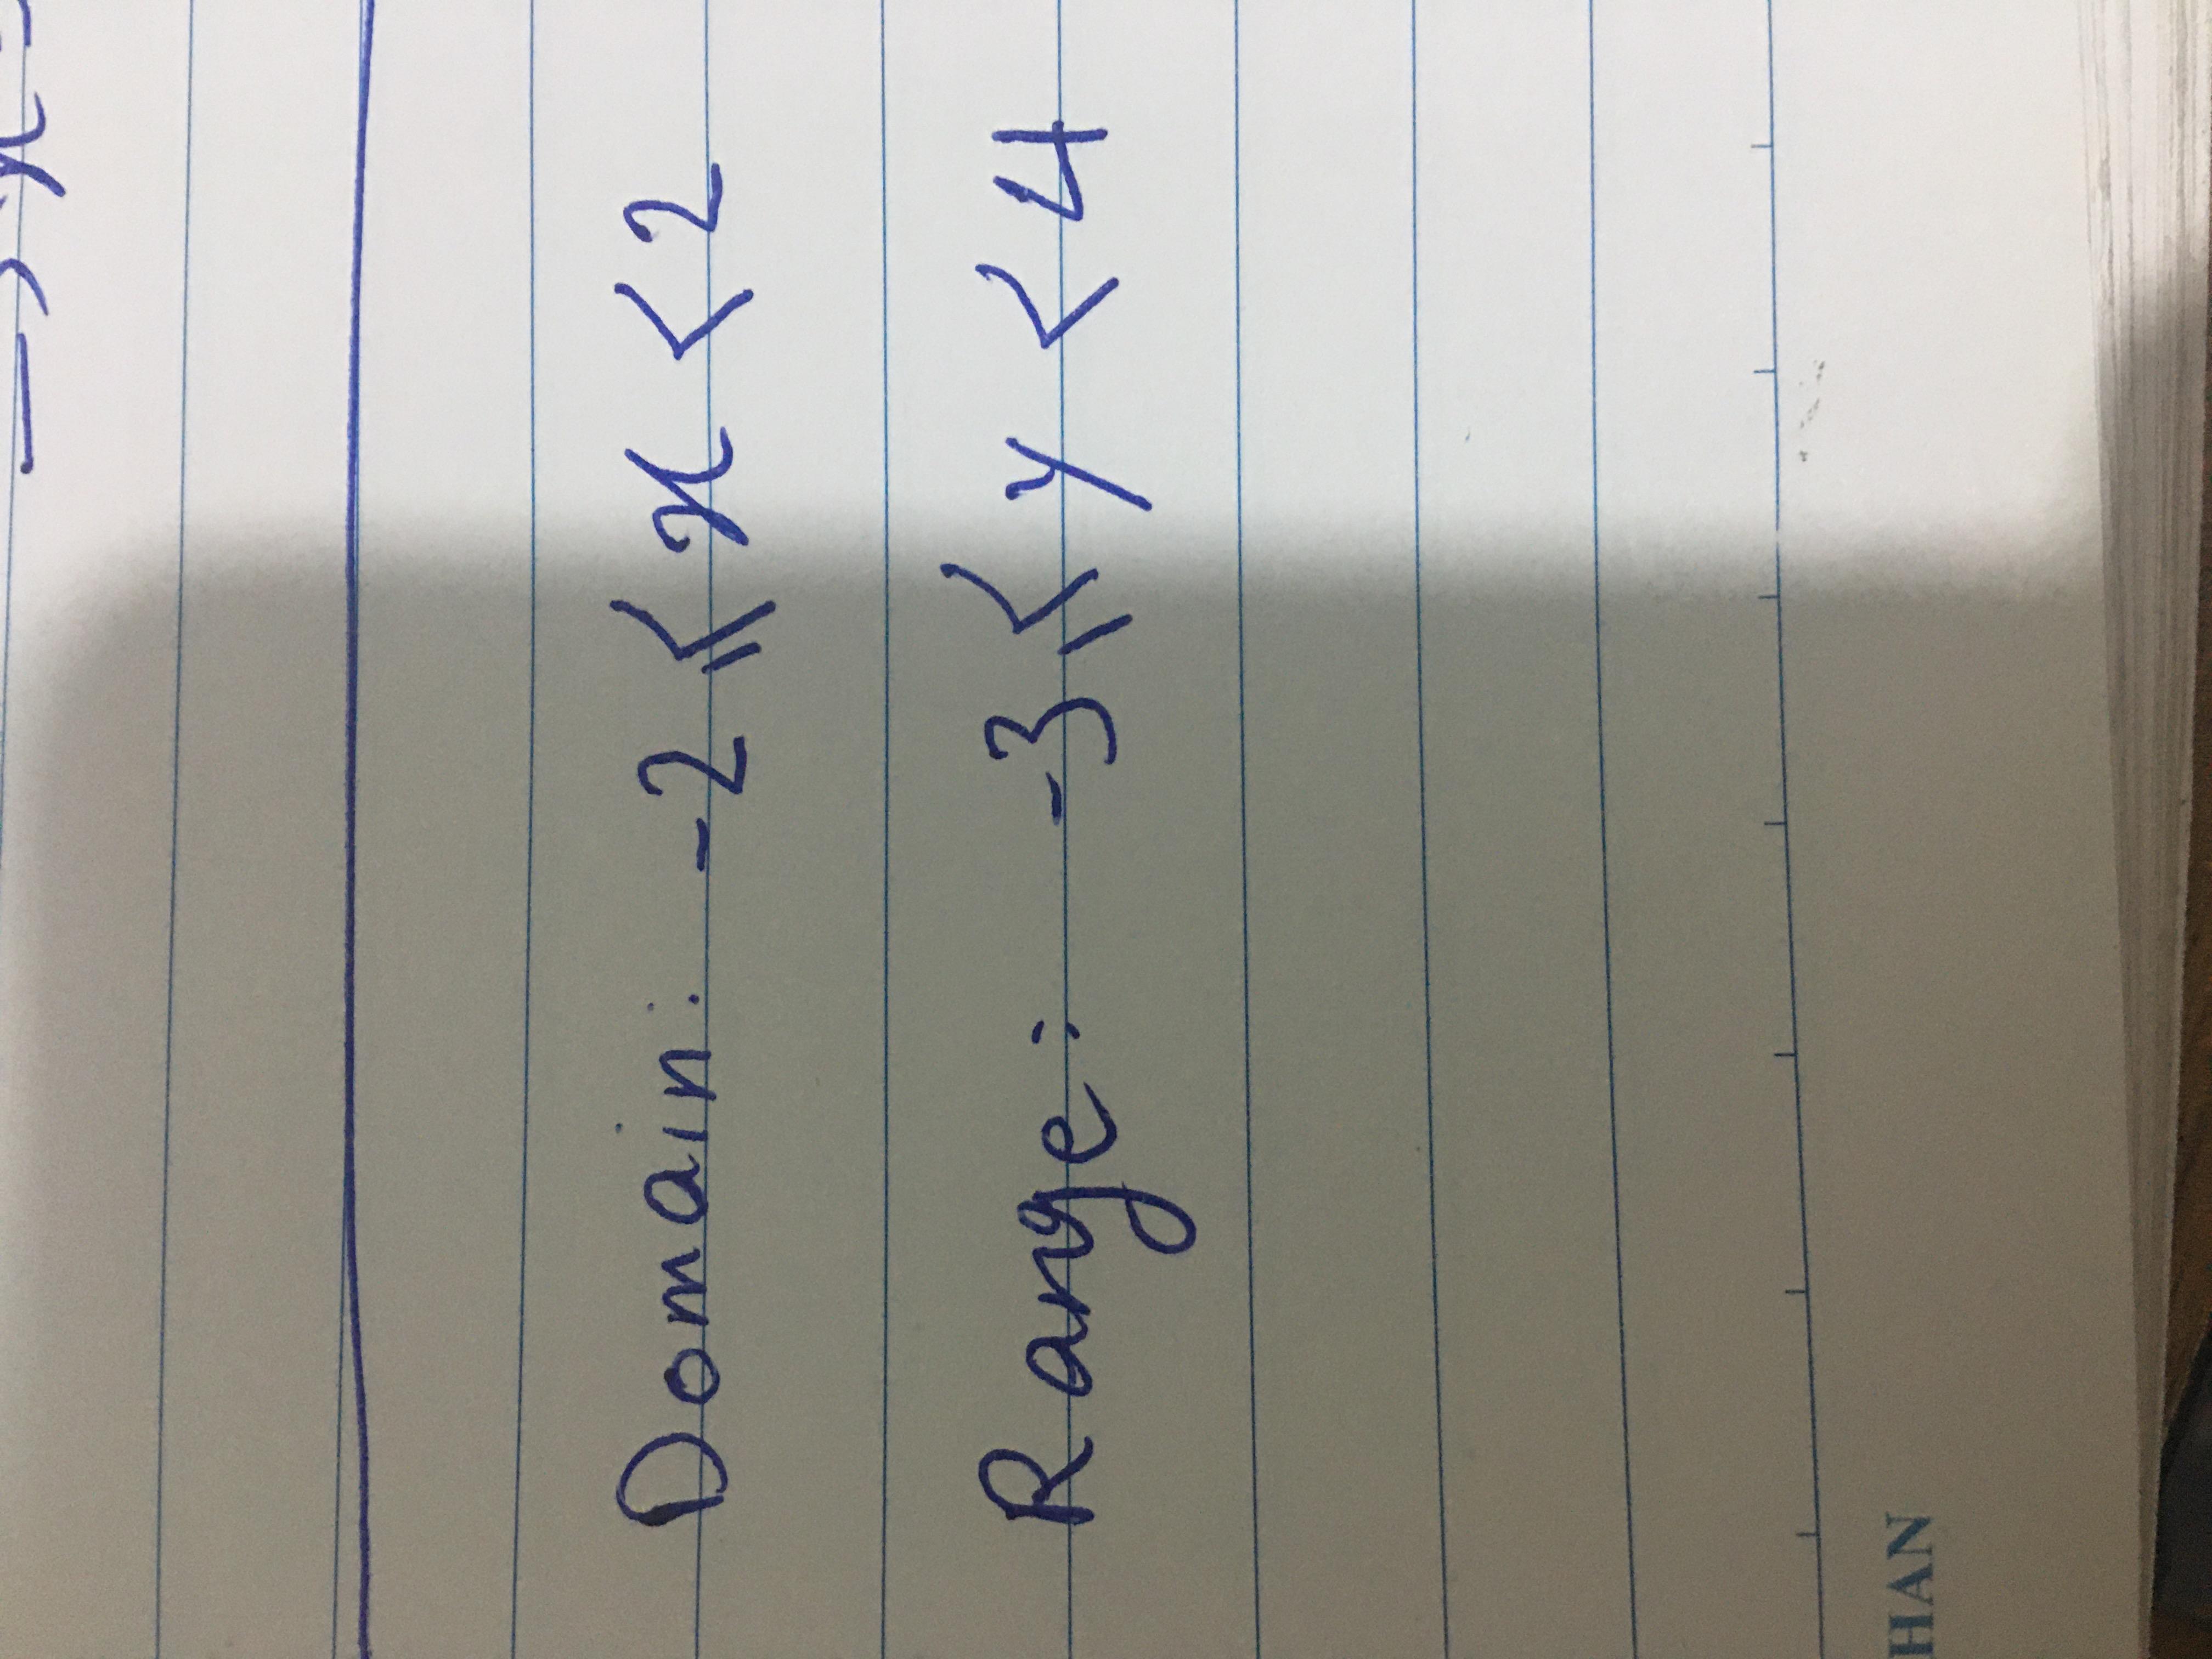 Domain: -2 ≤ x < 2
Range: -3 ≤ y < 4
HAN